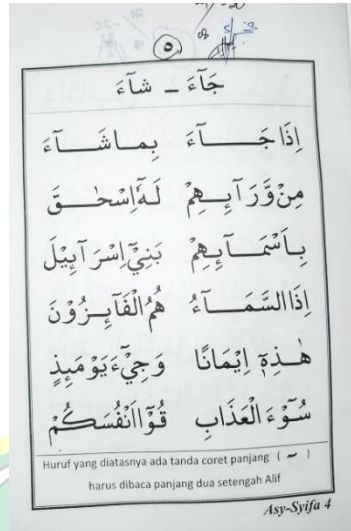 ٥
جَآءَ ــ شَآءَ
اِذَا جَــــآءَ بِمَا شَــــآءَ
مِنْ وَّرَآىِٕهِمْ لَهٗٓ اِسْحٰــقَ
بِاَسْمَــآىِٕهِمْ بَنِيْٓ اِسْرَآىِٕيْلَ
اِذَا السَّمَــآءُ هُمُ الْفَآىِٕــزُوْنَ
هٰــذِهٖٓ اِيْمَانًا وَجِيْۤءَ يَوْمَىِٕذٍ
سُوْۤءَ الْعَذَابِ قُوْٓا اَنْفُسَكُمْ
Huruf yang diatasnya ada tanda coret panjang ( ~ )
harus dibaca panjang dua setengah Alif
Asy-Syifa 4